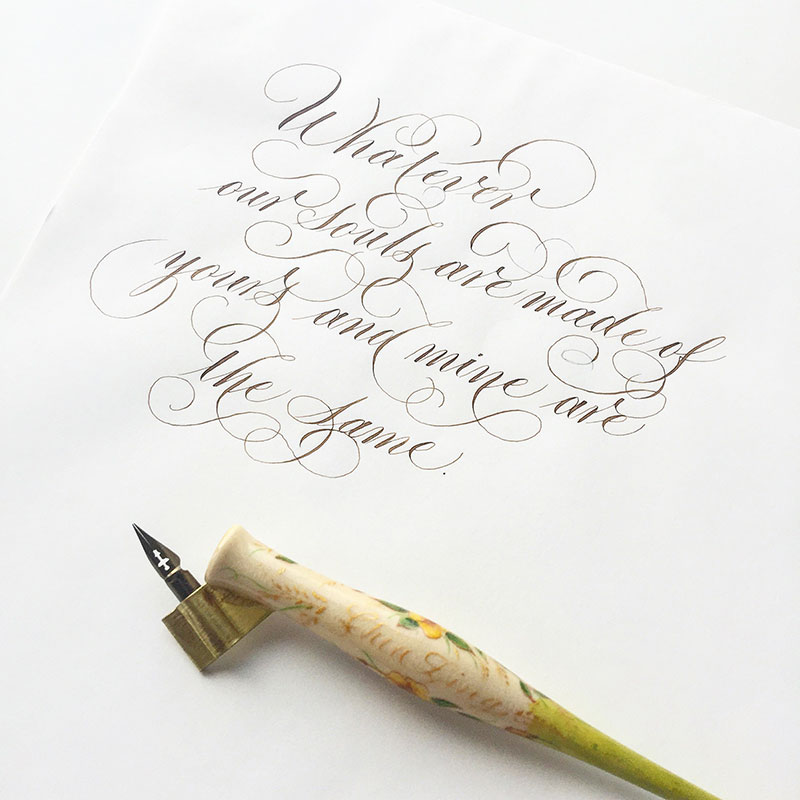 Whatever
our souls are made of
yours and mine are
the same.